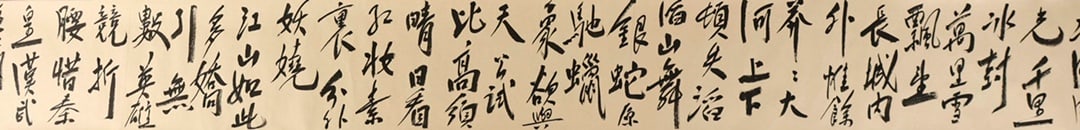 光千里
冰封
萬里雪
飄望
長城内
外惟餘
莽々大
河上下
頓失滔
滔山舞
銀蛇原
馳蠟
象欲與
天公試
比高須
晴日看
紅妝素
裹分外
妖嬈
江山如此
多嬌
引無
數英雄
競折
腰惜秦
皇漢武